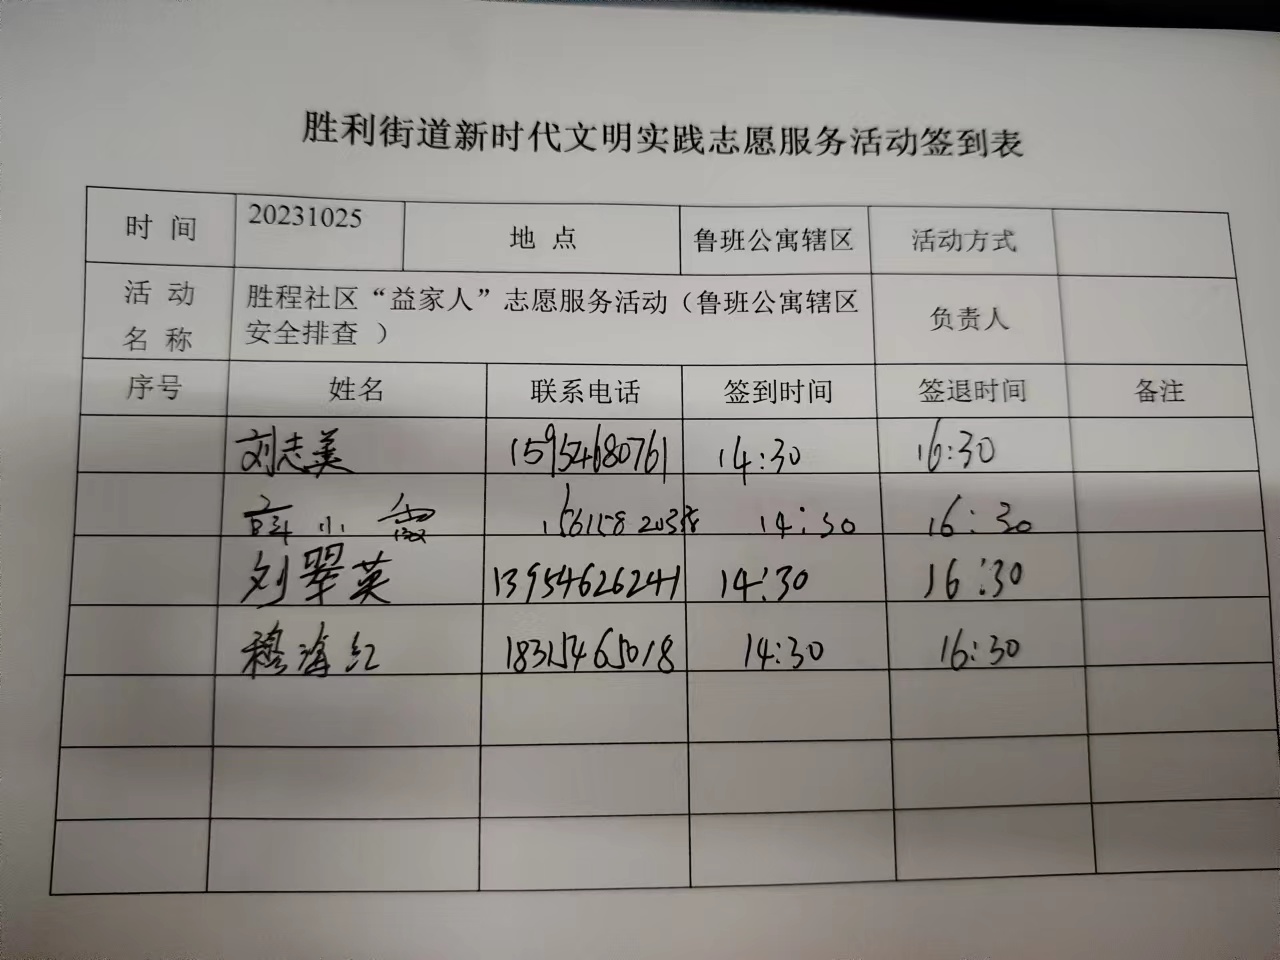 胜利街道新时代文明实践志愿服务活动签到表
时间 20231025 地点 鲁班公寓辖区 活动方式
活动名称 胜程社区“益家人”志愿服务活动（鲁班公寓辖区
安全排查 ） 负责人
序号 姓名 联系电话 签到时间 签退时间 备注
刘志美 15954680761 14:30 16:30
小 14:30 16:30
刘翠英 13954626241 14:30 16:30
穆海红 18315465018 14:30 16:30